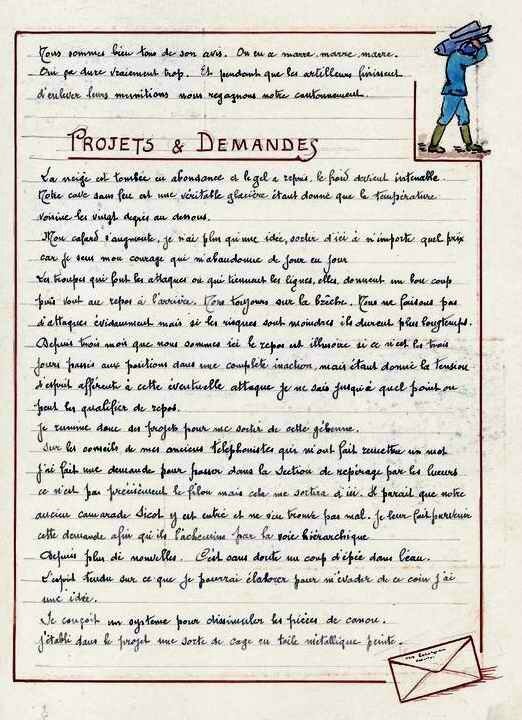 Nous sommes bien tous de son avis. On en a marre, marre, marre.
Oui ça dure vraiment trop. Et pendant que les artilleurs finissent
d'enlever leurs munitions nous regagnons notre cantonnement.
PROJETS & DEMANDES
La neige est tombée en abondance et le gel a repris, le froid devient intenable
Notre cave sans feu est une véritable glacière étant donné que la température
voisine les vingt degrés au dessous.
Mon cafard s'augmente, je n'ai plus qu'une idée, sortir d'ici à n'importe quel prix
car je sens mon courage qui m'abandonne de jour en jour
Les troupes qui font les attaques ou qui tiennent les lignes, elles, donnent un bon coup
puis vont au repos à l'arrière. Nous toujours sur la brèche. Nous ne faisons pas
d'attaques évidemment mais si les risques sont moindres ils durent plus longtemps.
Depuis trois mois que nous sommes ici le repos est illusoire si ce n'est les trois
jours passés aux positions dans une complète inaction, mais étant donné la tension
d'esprit afférente à cette éventuelle attaque je ne sais jusqu'à quel point on
peut les qualifier de repos.
Je rumine donc des projets pour me sortir de cette géhenne.
Sur les conseils de mes anciens téléphonistes qui m'ont fait remettre un mot
j'ai fait une demande pour passer dans la Section de repérage par les lueurs
ce n'est pas précisément le filon mais cela me sortira d'ici. Il parait que notre
ancien camarade Sicot y est entré et ne s'en trouve pas mal. Je leur fait parvenir
cette demande afin qu'ils l'achemine par la voie hiérarchique
Depuis plus de nouvelles. C'est sans doute un coup d'épée dans l'eau.
L'esprit tendu sur ce que je pourrai élaborer pour m'évader de ce coin j'ai
une idée.
Je conçoit un système pour dissimuler les pièces de canon.
J'établi dans le projet une sorte de cage en toile métallique peinte.